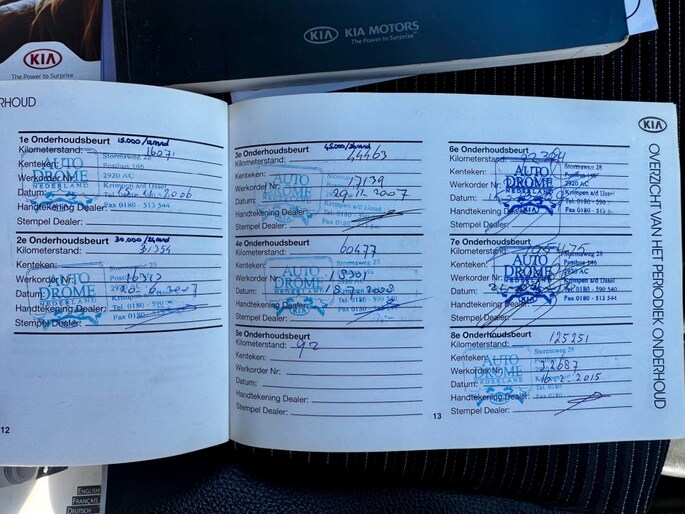 KIA
The Power to Surprise
KIA KIA MOTORS
The Power to Surprise™
RHOUD
1e Onderhoudsbeurt 15.000/12mnd
Kilometerstand: 16071
Kenteken:
Werkorder
Datum: 2006
Handtekening Dealer:
Stempel Dealer:
AUTO
DROME
NEDERLAND
Stormsweg 28
Postbus 146
2920 AC
Krimpen a/d IJssel
Fax 0180 - 513 544
2e Onderhoudsbeurt 30.000/24mnd
Kilometerstand: 31354
Kenteken:
Werkorder Nr:
Datum: 2007
Handtekening Dealer:
Stempel Dealer:
AUTO
DROME
NEDERLAND
Tel. 0180 - 590 540
Fax 0180 - 513 544
12
3e Onderhoudsbeurt 45.000/36mnd
Kilometerstand: 44463
Kenteken:
Werkorder Nr: 17139
Datum: 29.11.2007
Handtekening Dealer:
Stempel Dealer:
AUTO
DROME
NEDERLAND
Krimpen a/d IJssel
4e Onderhoudsbeurt
Kilometerstand: 60477
Kenteken:
Werkorder Nr: 18301
Datum: 18.7.2008
Handtekening Dealer:
Stempel Dealer:
AUTO
DROME
KIA
Tel. 0180 - 590 540
5e Onderhoudsbeurt
Kilometerstand: 92
Kenteken:
Werkorder Nr:
Datum:
Handtekening Dealer:
Stempel Dealer:
13
KIA
OVERZICHT VAN HET PERIODIEK ONDERHOUD
6e Onderhoudsbeurt
Kilometerstand:
Kenteken:
Werkorder Nr:
Datum:
Handtekening Dealer:
Stempel Dealer:
AUTO
DROME
KIA
Stormsweg 28
Postbus 146
2920 AC
Krimpen a/d IJssel
Tel. 0180 - 590 540
Fax 0180 - 513 544
7e Onderhoudsbeurt
Kilometerstand:
Kenteken:
Werkorder Nr:
Datum:
Handtekening Dealer:
Stempel Dealer:
AUTO
DROME
KIA
Stormsweg 28
Postbus 146
2920 AC
Tel. 0180 - 590 540
Fax 0180 - 513 544
8e Onderhoudsbeurt
Kilometerstand: 125251
Kenteken:
Werkorder Nr: 22687
Datum: 2015
Handtekening Dealer:
Stempel Dealer:
AUTO
DROME
NEDERLAND
Stormsweg 28
ENGLISH
FRANÇAIS
DEUTSCH